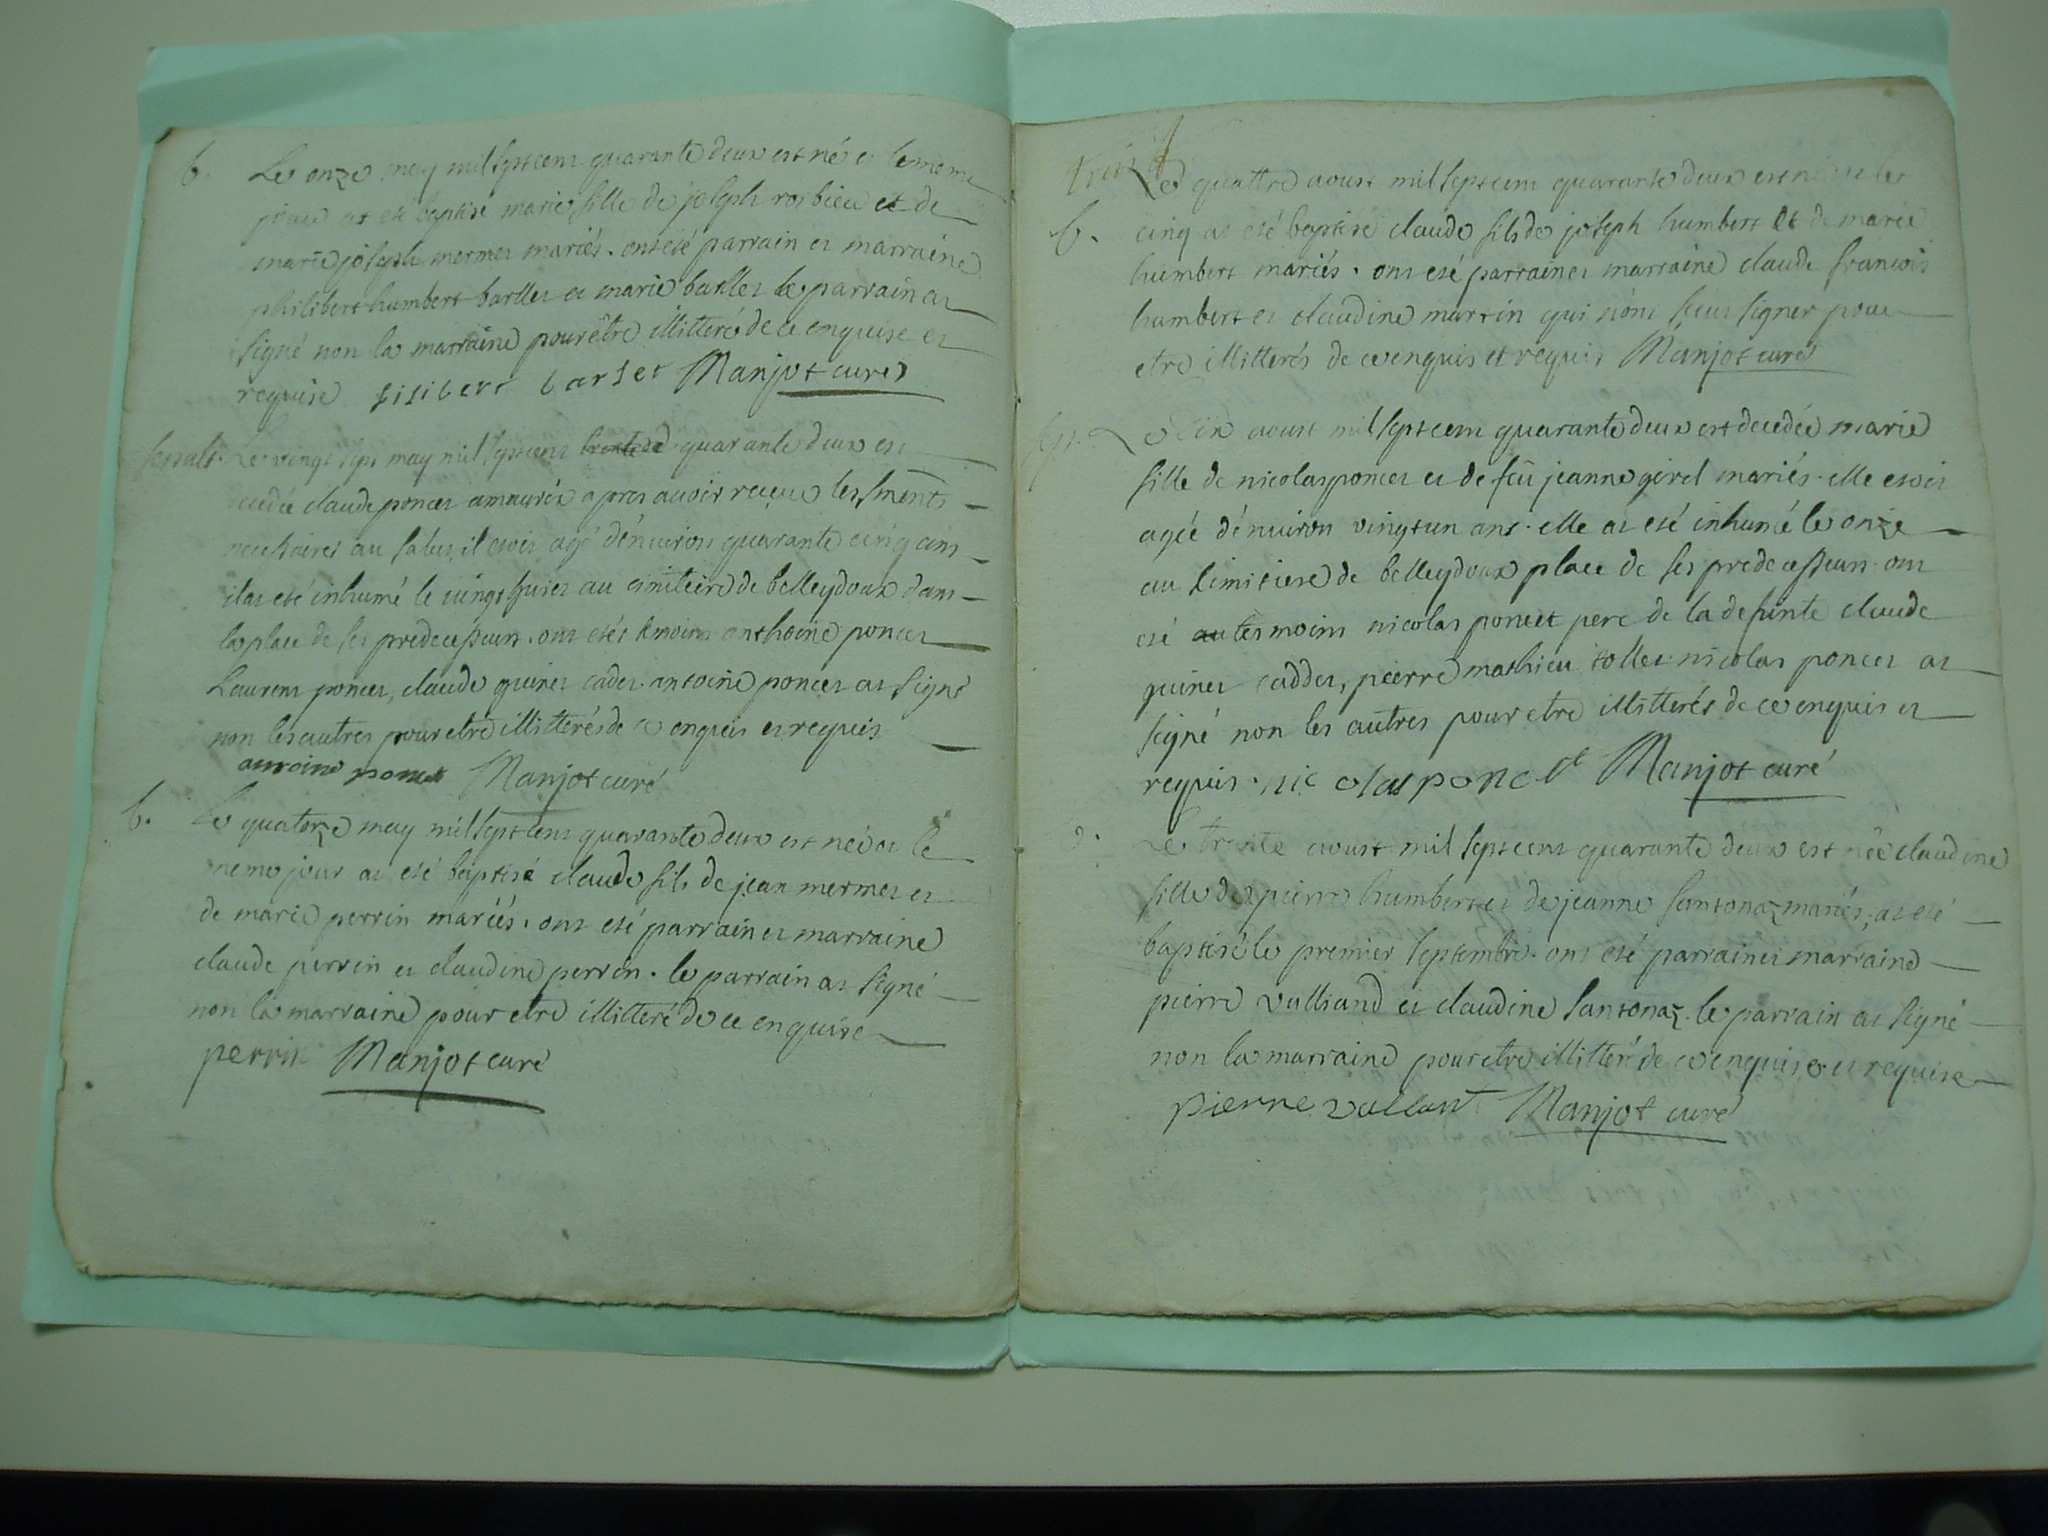 b. Le onze may mil sept cent quarante deux est né et le meme
jour at eté baptisé marie fille de joseph rosbieu et de
marie joseph mermet mariés. ont eté parrain et marraine
philibert humbert barlet et marie barlet le parrain at
signé non la marraine pour être illitteré de ce enquise et
requise filibert barlet Manjot curé
Le vingt sept may mil sept cent trente d quarante deux est
decedée claude poncet amauréx apres avoir reçeu les sments
necessaires au salut, il etoit agé d'environ quarante cinq ans
il at eté inhumé le vingt huitet au cimiteire de belleydoux dans
la place de ses predecesseurs. ont etés temoins anthoine poncet
Laurent poncet, claude guinet cadet. antoine poncet at signé
non les autres pour etre illitterés de ce enquis et requis
antoine poncet Manjot curé
b. Le quatorze may mil sept cent quarante deux est né et le
meme jour at eté baptisé claude fils de jean mermet et
de marie perrin mariés. ont eté parrain et marraine
claude perrin et claudine perrin. le parrain at signé
non la marraine pour etre illitteré de ce enquise
perrin Manjot curé
Le quattre aoust mil sept cent quarante deux est né et le
b. cinq at eté baptisé claude fils de joseph humbert et de marie
humbert mariés. ont eté parrain et marraine claude francois
humbert et claudine martin qui n'ont sceu signer pour
etre illitterés de ce enquis et requis Manjot curé
Le dix aoust mil sept cent quarante deux est decedée marie
fille de nicolas poncet et de feü jeanne girel mariés. elle etoit
agée d'environ vingt un ans. elle at eté inhumé le onze
au simitiere de belleydoux place de ses predecesseurs. ont
eté au tesmoins nicolas poncet pere de la defunte claude
guinet caddet, pierre mathieu tollet. nicolas poncet at
signé non les autres pour etre illitterés de ce enquis et
requis. nicolas poncet Manjot curé
Le trente aoust mil sept cent quarante deux est née claudine
fille de pierre humbert et de jeanne santonaz mariés, at eté
baptisé le premier septembre. ont eté parrain et marraine
pierre valliand et claudine santonaz. le parrain at signé
non la marraine pour etre illitteré de ce enquise et requise
pierre vallant Manjot curé